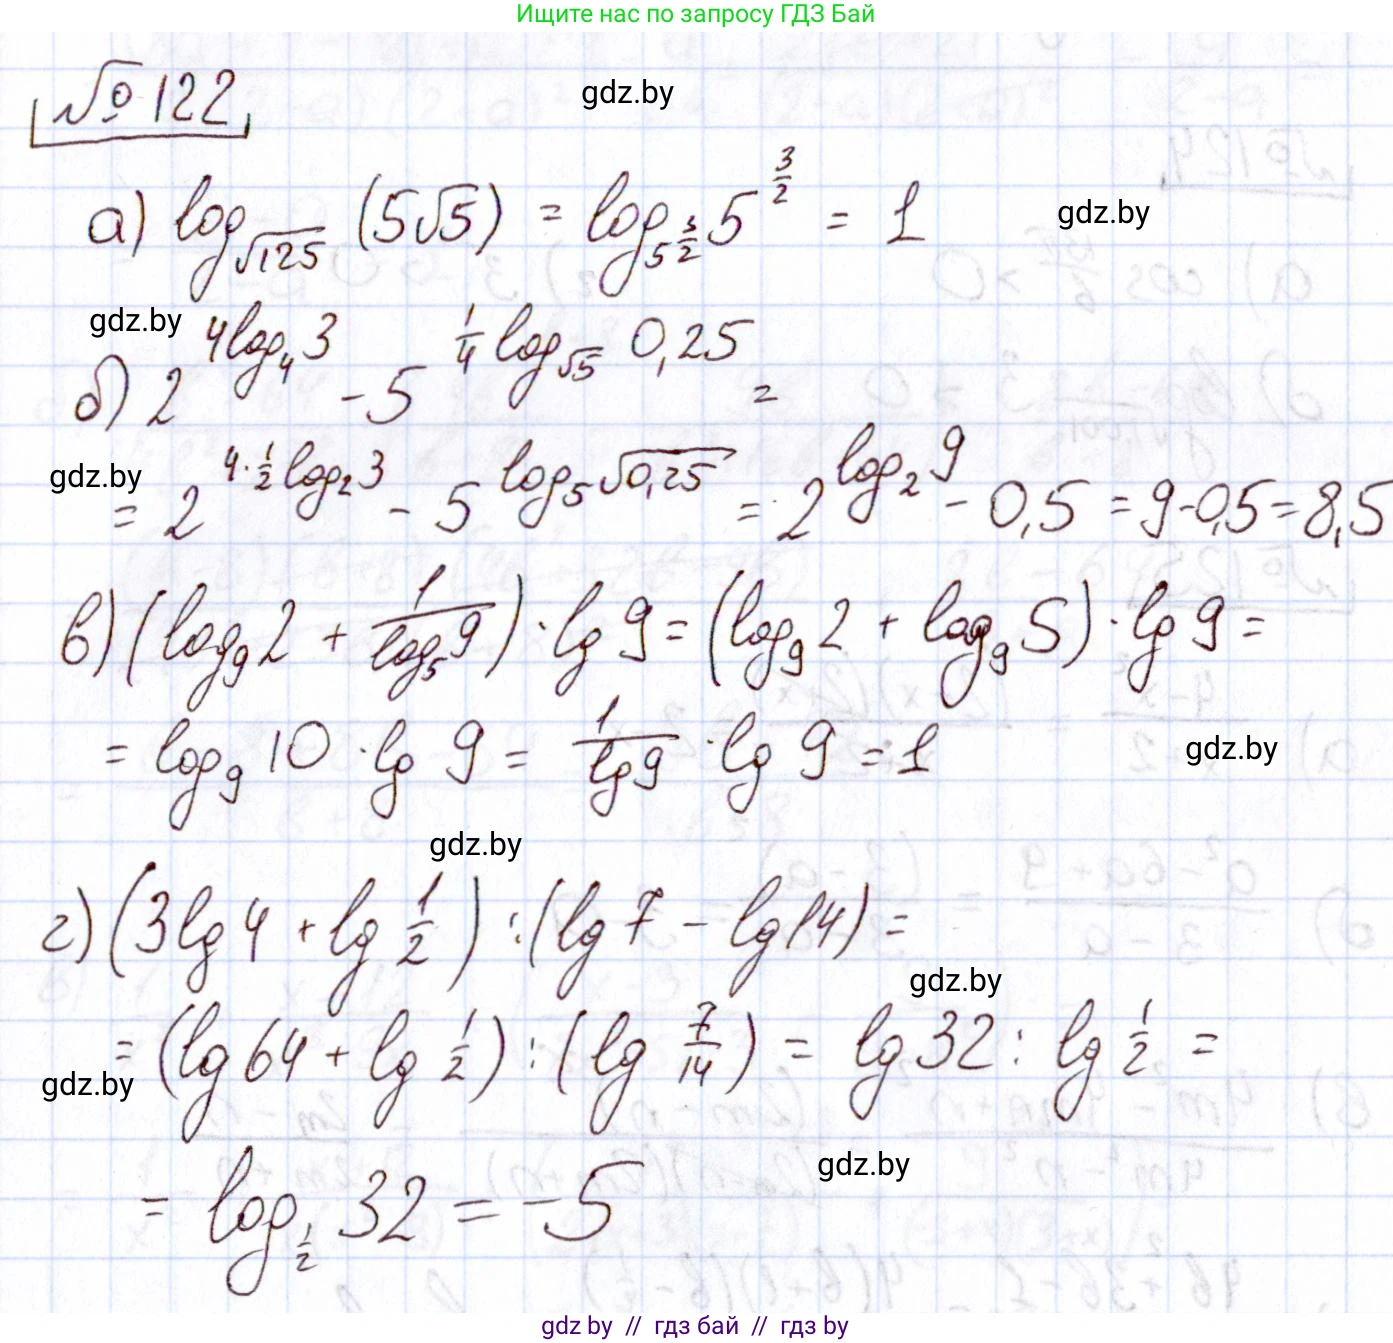 Ищите нас по запросу ГДЗ Бай
№ 122
gdz.by
а) log_{√125} (5√5) = log_{5^{3/2}} 5^{3/2} = 1
gdz.by
gdz.by
б) 2^{4log_4 3} - 5^{1/4 log_{√5} 0,25} =
gdz.by
= 2^{4·1/2 log_2 3} - 5^{log_5 √0,25} = 2^{log_2 9} - 0,5 = 9-0,5 = 8,5
в) (log_9 2 + 1/log_5 9) · lg 9 = (log_9 2 + log_9 5) · lg 9 =
= log_9 10 · lg 9 = 1/lg 9 · lg 9 = 1
gdz.by
gdz.by
г) (3 lg 4 + lg 1/2) : (lg 7 - lg 14) =
gdz.by
= (lg 64 + lg 1/2) : (lg 7/14) = lg 32 : lg 1/2 =
gdz.by
gdz.by
= log_{1/2} 32 = -5
gdz.by // гдз бай // гдз by